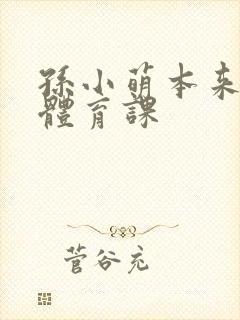 孫小萌本来
體育課
菅谷充